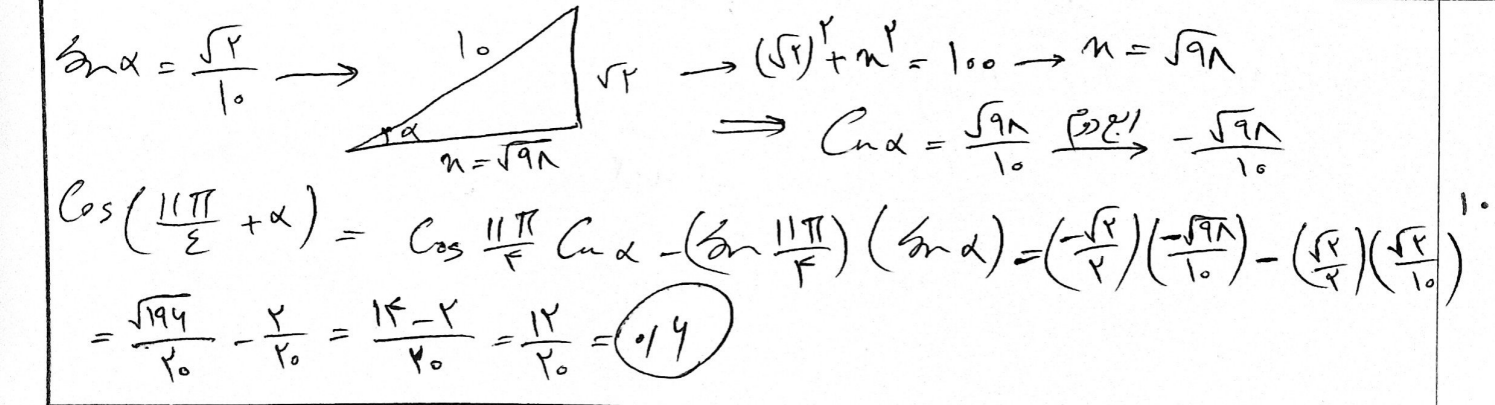 sin α = √۲/۱۰ → ۱۰ √۲ α x = √۹۸ → (√۲)^۲ + x^۲ = ۱۰۰ → x = √۹۸
⇒ Cos α = √۹۸/۱۰ ربع دوم → -√۹۸/۱۰
Cos(۱۱π/٤ + α) = Cos ۱۱π/۴ Cos α - (sin ۱۱π/۴)(sin α) = (-√۲/۲)(-√۹۸/۱۰) - (√۲/۲)(√۲/۱۰) ۱۰
= √۱۹۶/۲۰ - ۲/۲۰ = ۱۴-۲/۲۰ = ۱۲/۲۰ = ۰/۶